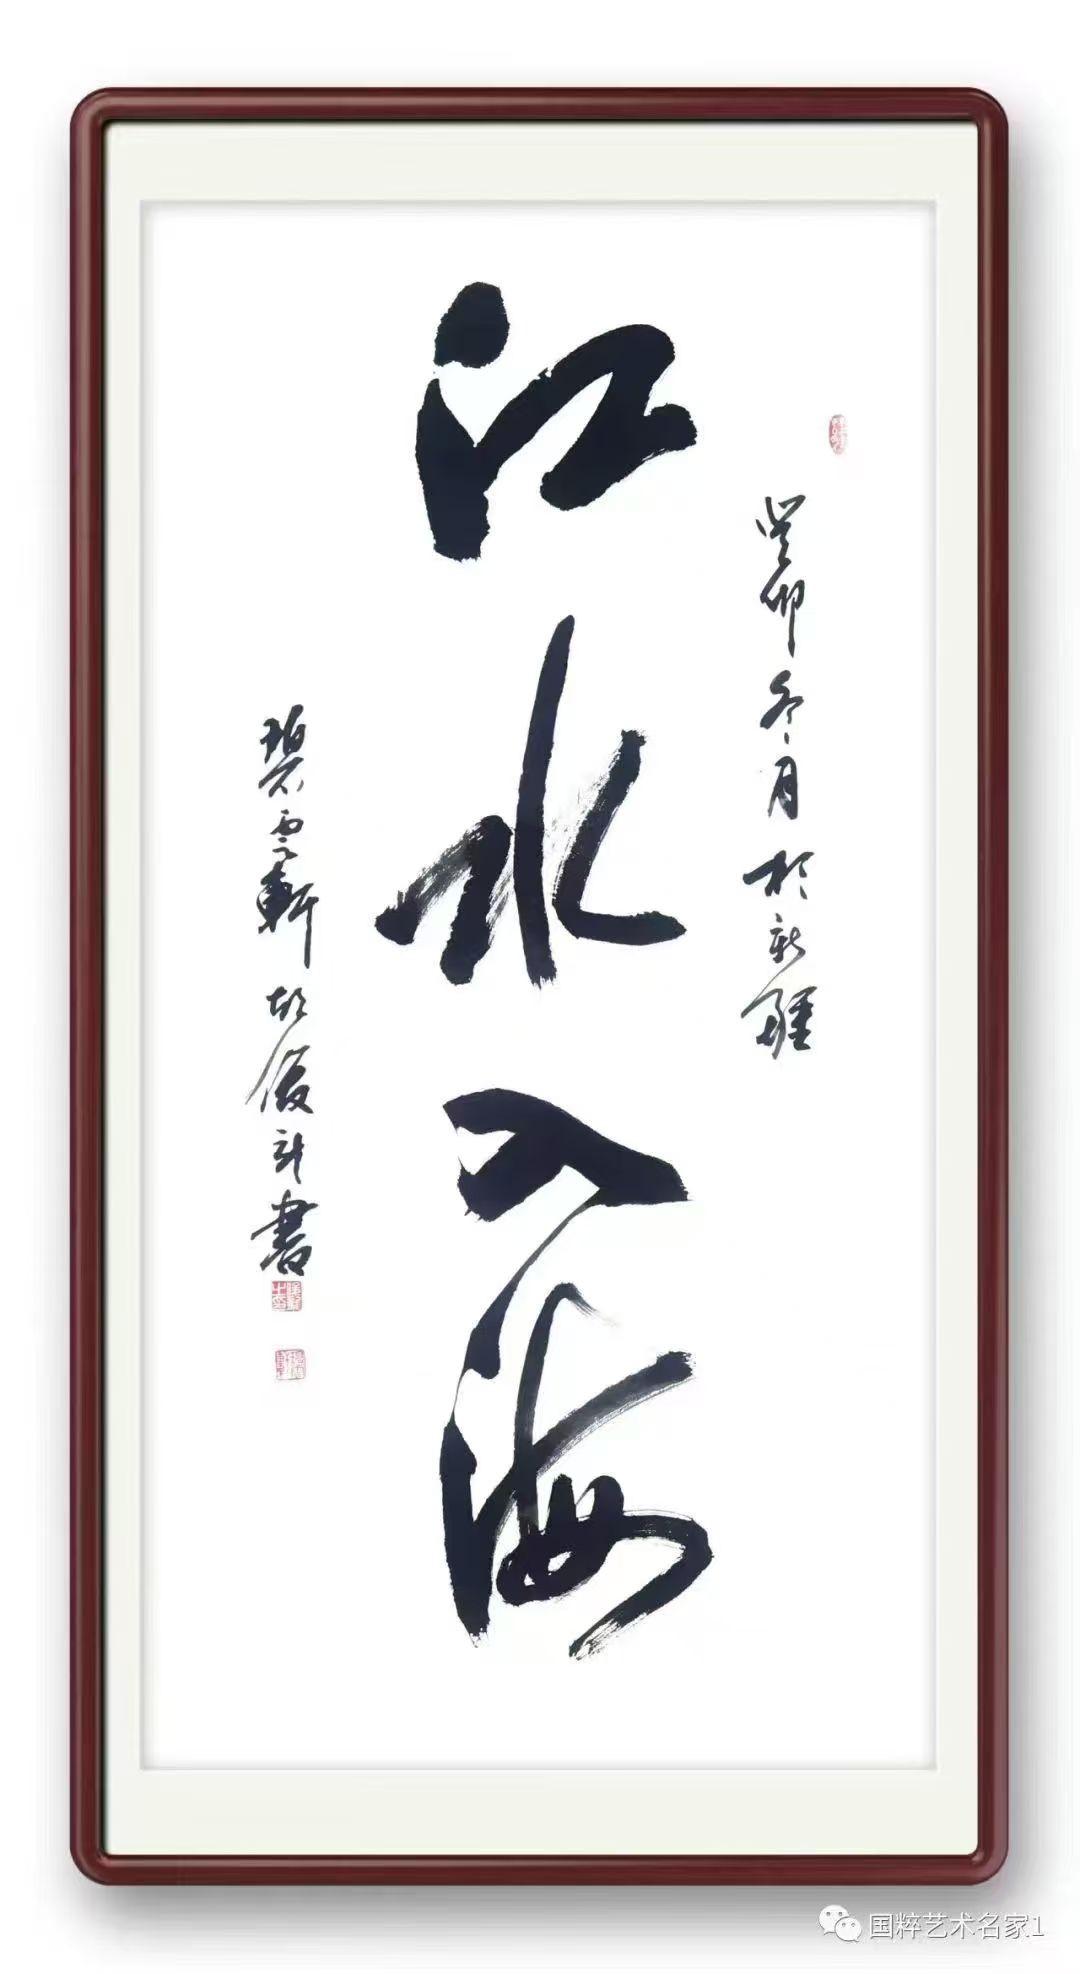 癸卯冬月於新疆
江水入海
碧雲軒胡俊訓書
国粹艺术名家1